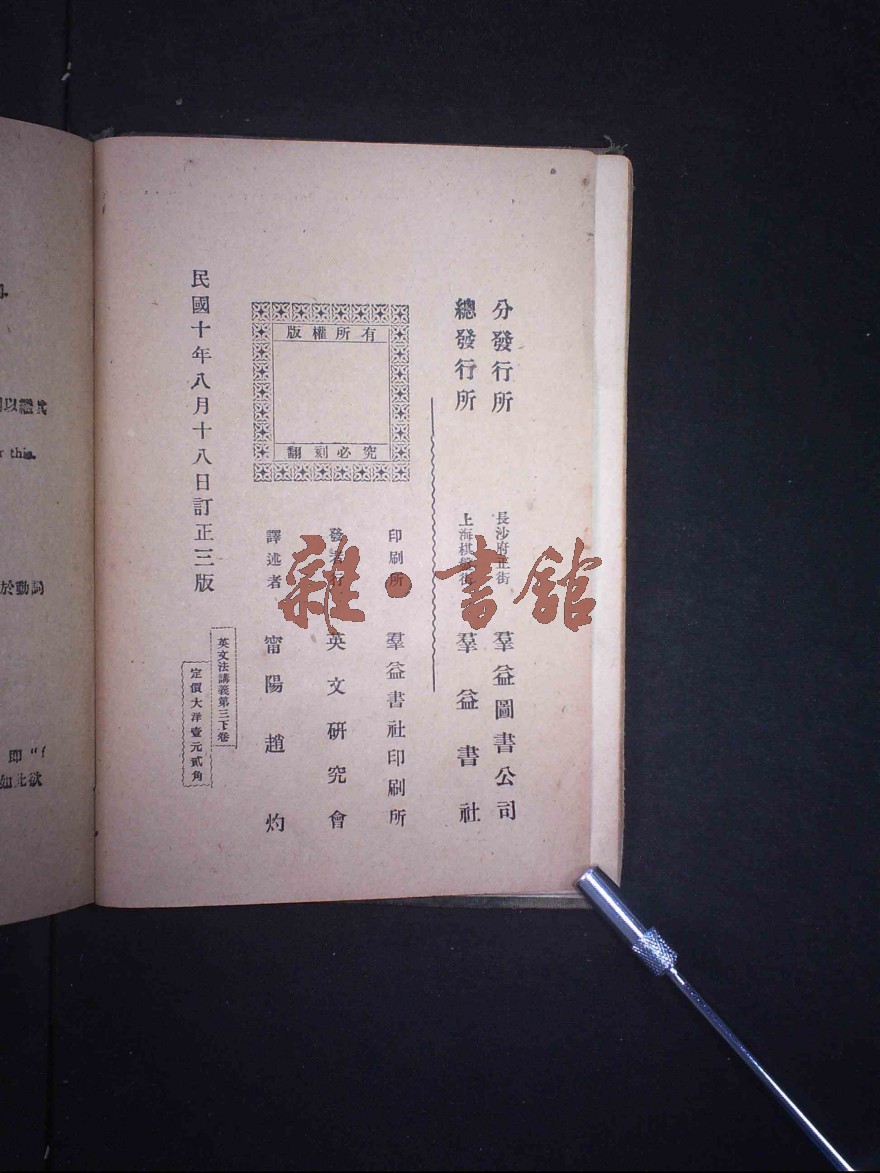 以繼式
this.
於動詞
即 "
如此欲
民國十年八月十八日訂正三版
定價大洋壹元貳角
英文法講義第三下卷
版權所有
翻刻必究
譯述者 甯陽趙灼
英文研究會
印刷所 羣益書社印刷所
總發行所 上海棋盤街 羣益書社
分發行所 長沙府正街 羣益圖書公司
雜·書館